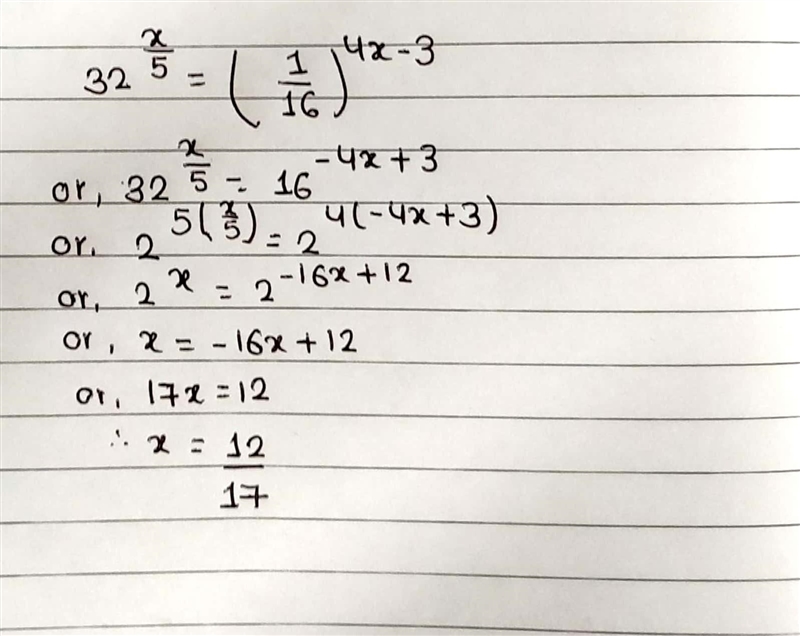 32^(x/5) = (1/16)^(4x-3)
or, 32^(x/5) = 16^(-4x+3)
or. 2^(5(x/5)) = 2^(4(-4x+3))
or, 2^x = 2^(-16x+12)
or, x = -16x+12
or, 17x = 12
∴ x = 12/17